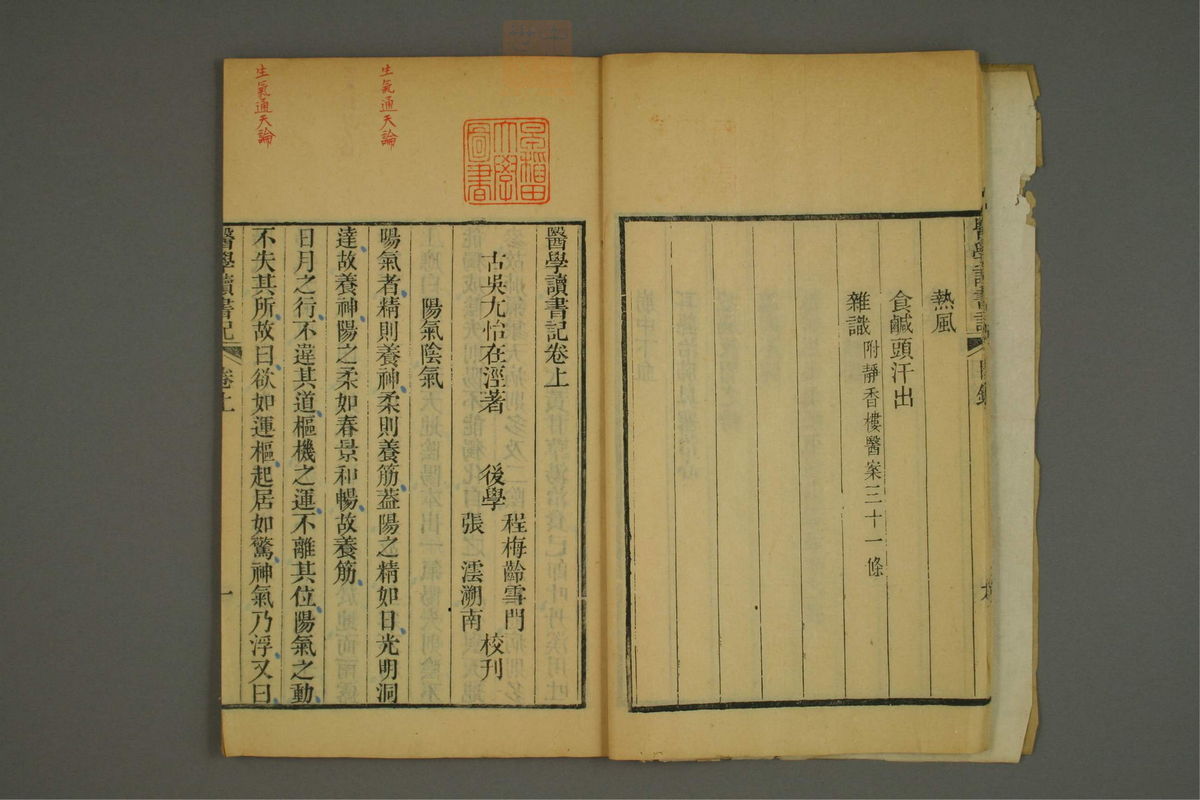 熱風
食鹹頭汗出
雜識附靜香樓醫案三十一條
醫學讀書記
目錄
早稻田大學圖書
生氣通天論
生氣通天論
醫學讀書記卷上
古吳尤怡在涇著
後學
程梅齡雪門
張澐溯南
校刊
陽氣陰氣
陽氣者精則養神柔則養筋葢陽之精如日光明洞
達故養神陽之柔如春景和暢故養筋
日月之行不違其道樞機之運不離其位陽氣之動
不失其所故曰欲如運樞起居如驚神氣乃浮又曰
醫學讀書記
卷上
一